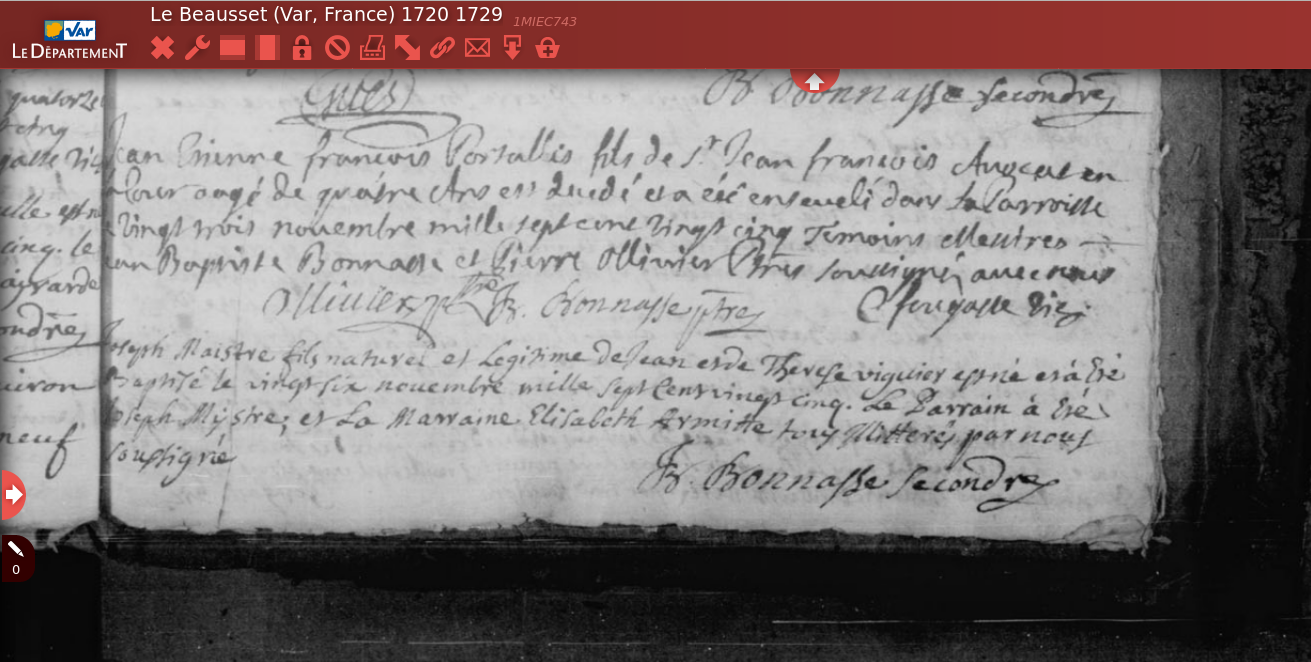 Le Beausset (Var, France) 1720 1729 1MIEC743
VAR
LE DÉPARTEMENT
Gues
B. Bonnasse secondre
Jean Etienne francois Portallis fils de Sr Jean francois Avocat en
la Cour aagé de quatre Ans est decedé et a été enseveli dans la Parroisse
le Vingt trois novembre mille sept cent vingt cinq Temoins Messires
Jean Baptiste Bonnasse et Pierre Ollivier Ptres soussignés avec nous
Ollivier ptre B. Bonnasse ptre fougasse vic
Joseph Maistre fils naturel et Legitime de Jean et de Therese viguier est né et à Eté
Baptisé le vingt six novembre mille sept Cent vingt cinq. Le Parrain à Eté
Joseph Mystre; et La Marraine Elisabeth Ermitte tous Illitterés par nous
soussigné
B. Bonnasse secondre
quatorze
cinq
fougasse vic
cinq. le
neuf
0